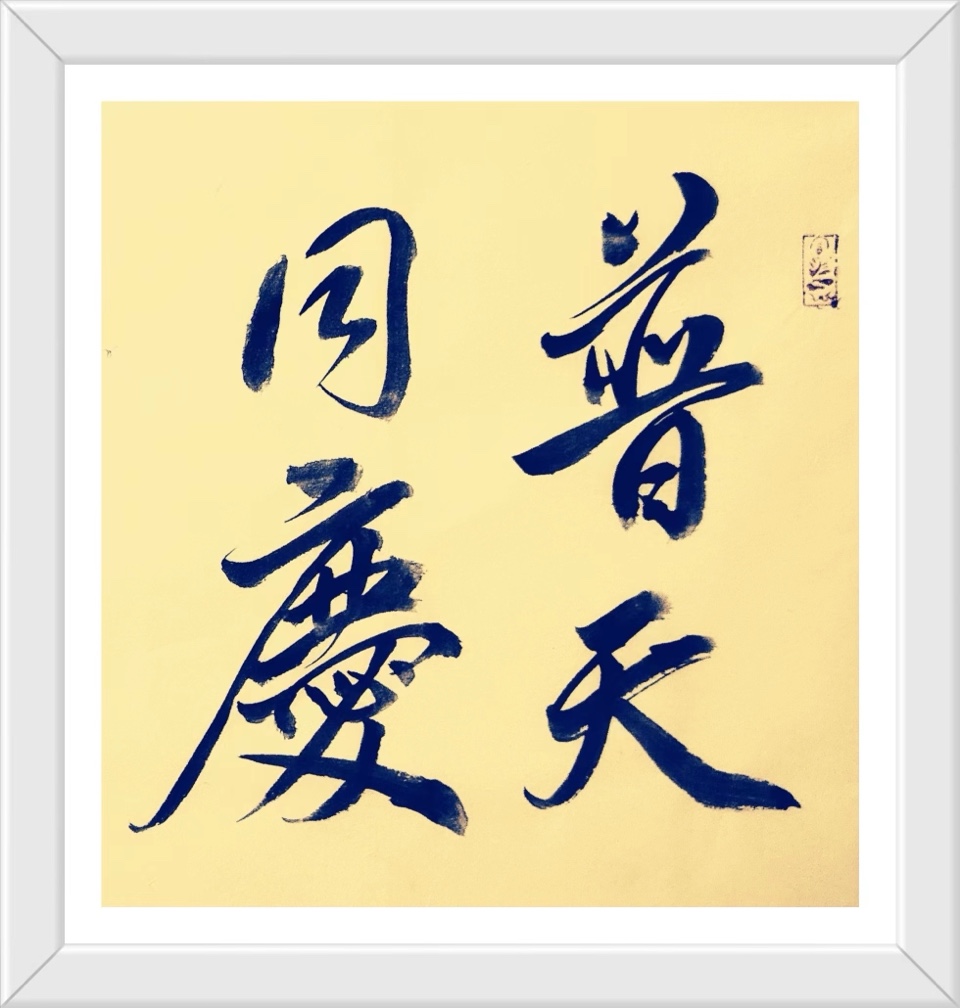 普天
同慶